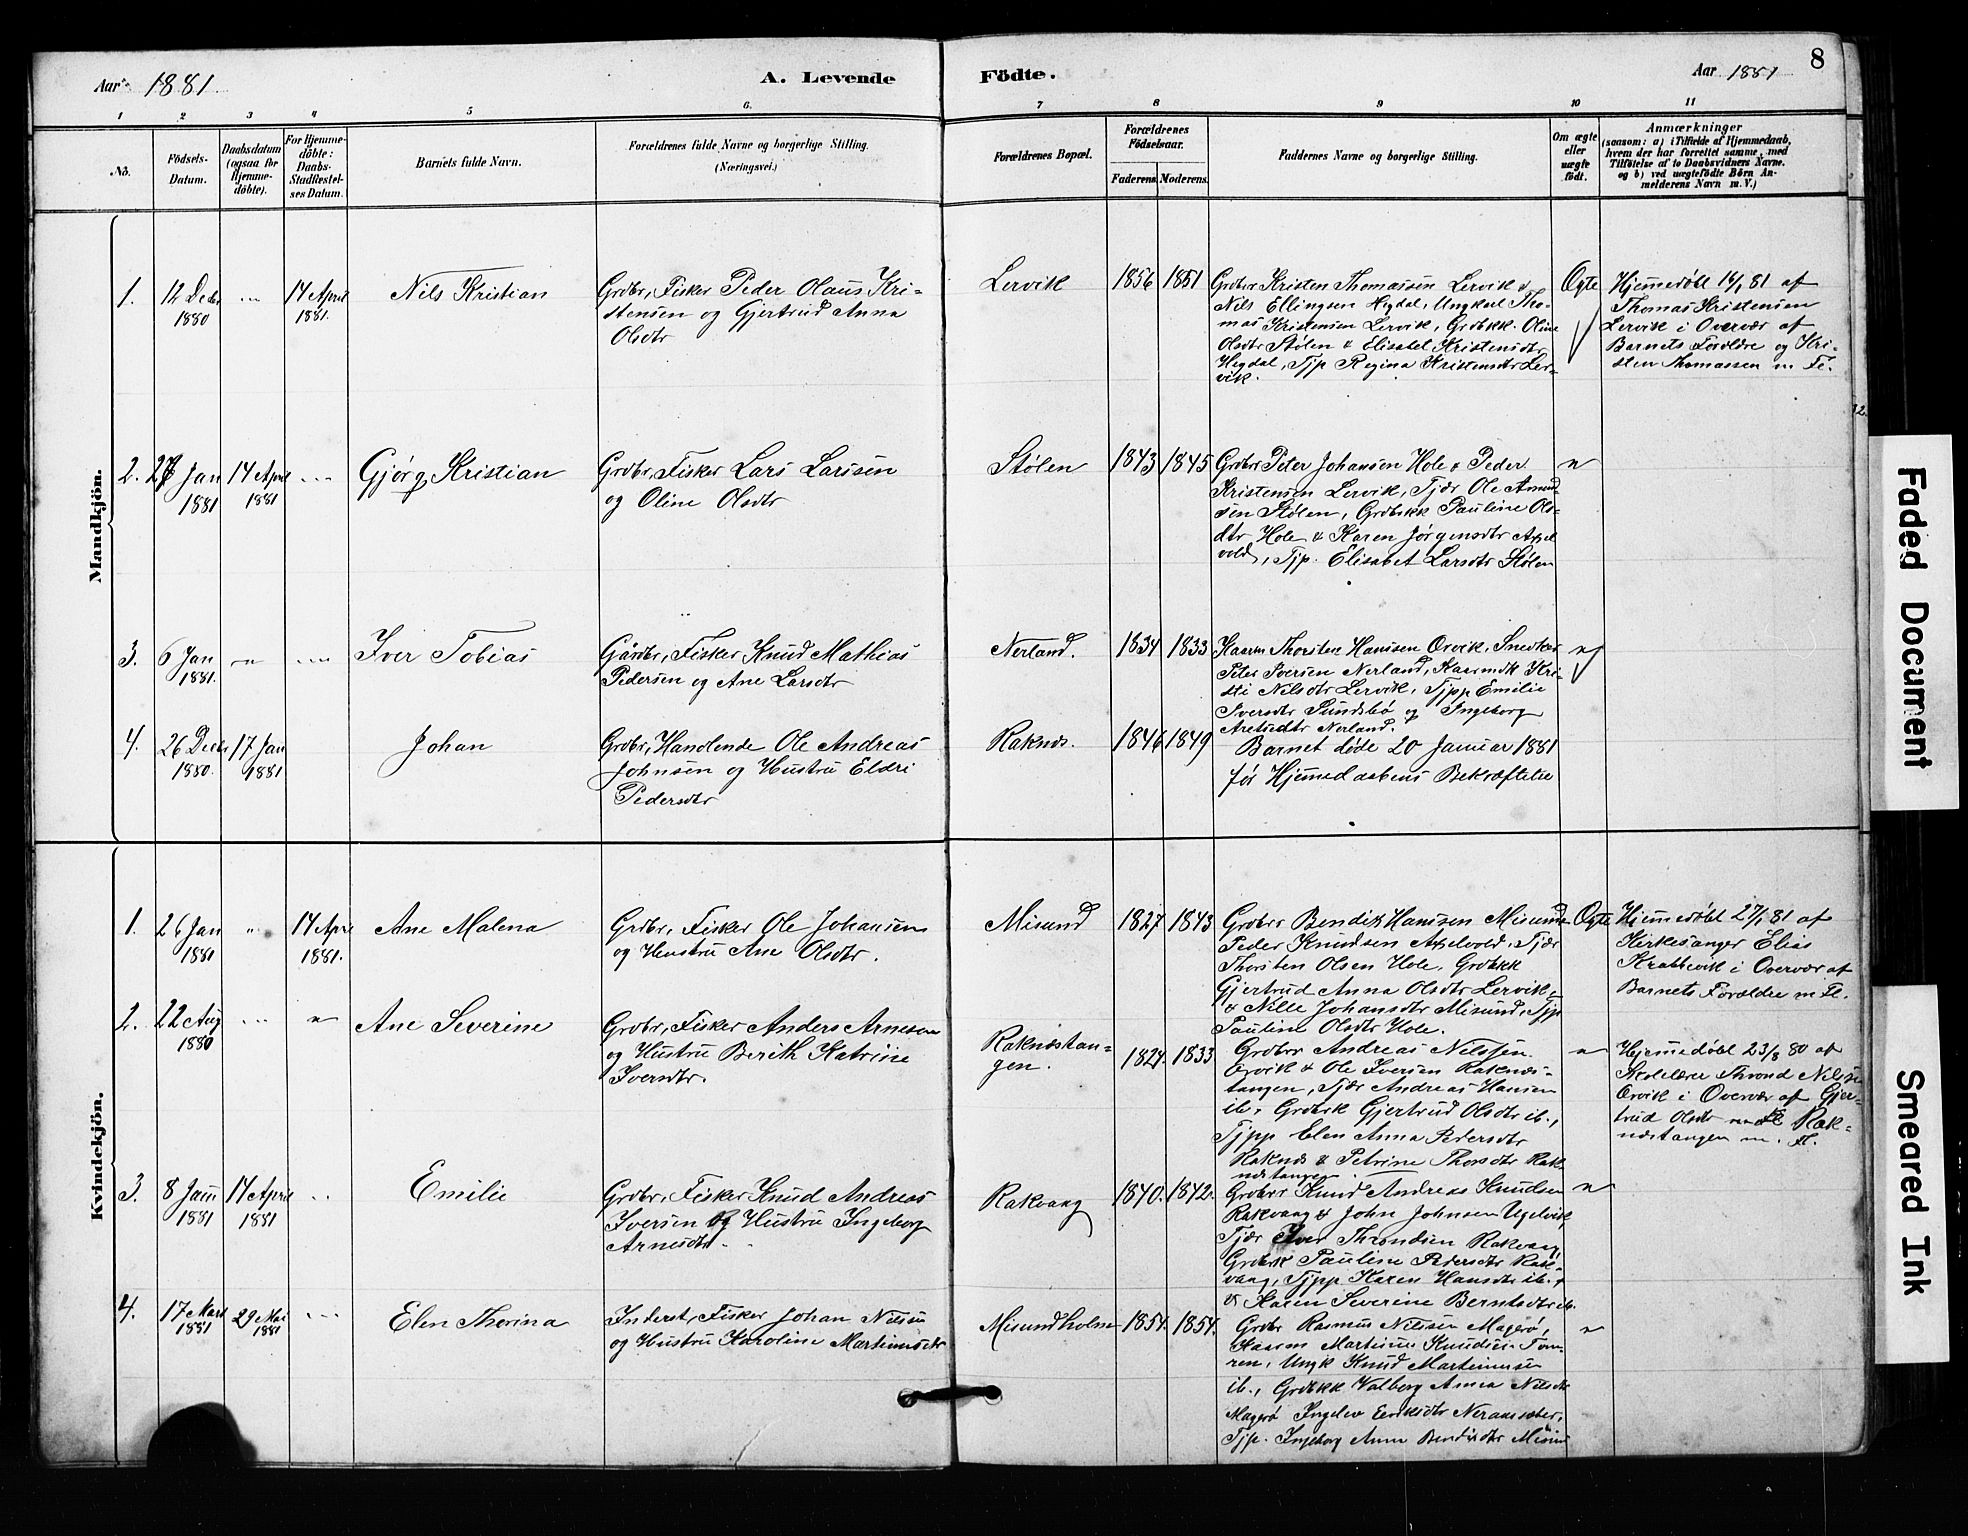 Aar 1881
A. Levende
Födte.
Aar 1881
8
1 2 3 4 5 6. 7 8 9 10 11
No.
Födsels-
Datum.
Daabsdatum
(ogsaa for
Hjemme-
döbte).
For Hjemme-
döbte:
Daabs-
Stadfæstel-
ses Datum.
Barnets fulde Navn.
Forældrenes fulde Navne og borgerlige Stilling.
(Næringsvei.)
Forældrenes Bopæl.
Forældrenes
Födselsaar.
Faderens. Moderens.
Faddernes Navne og borgerlige Stilling.
Om ægte
eller
uægte
födt.
Anmærkninger
(saasom: a) i Tilfælde af Hjemmedaab,
hvem der har forrettet samme, med
Tilföielse af to Daabsvidners Navne.
og b) ved uægtefödte Börn An-
melderens Navn m. V.)
Mandkjön.
1.
12 Decbr
1880
14 April
1881.
Nils Kristian
Grdbr, Fisker Peder Olaus Kri-
stensen og Gjertrud Anna
Olsdtr
Lervik
1856 1851
Grdbrr Kristen Thomassen Lervik &
Nils Ellingsen Hegdal, Ungkarl Tho-
mas Kristensen Lervik, Grdbkk. Oline
Olsdtr Stølen & Elisabet Kristensdtr
Hegdal, Tjp Regina Kristensdtr Ler-
vik.
Ægte
Hjemmedøbt 16/1 81 af
Thomas Kristensen
Lervik i Overvær af
Barnets Forældre og Kri-
sten Thomassen m Fl.
2.
Jan
1881
14 April
1881
Gjørg Kristian
Grdbr, Fisker Lars Larssen
og Oline Olsdtr
Stølen
1843 1845
Grdbrr Peter Johansen Hole & Peder
Kristensen Lervik, Tjdr Ole Amund-
sen Stølen, Grdbrkk Pauline Ols-
dtr Hole & Karen Jørgensdtr Axel
vold, Tjp. Elisabet Larsdtr Stølen
"
3.
6 Jan
1881.
"
Iver Tobias
Gårdbr, Fisker Knud Mathias
Pedersen og Ane Larsdtr
Nerland.
1834 1833
Kaarm Thorsten Hanssen Orvik, Snedker
Peter Iversen Nerland, Kaarmdk Kri-
sti Nilsdtr Lervik, Tjpp Emilie
Iversdtr Sundsbø og Ingeborg
Aretusdtr Nerland.
"
4.
26 Decbr
1880.
17 Jan
1881
Johan
Grdbr, Handlende Ole Andreas
Johnsen og Hustru Eldri
Pedersdtr
Raknæs.
1846 1849
Barnet døde 20 Januar 1881
før Hjemedaabens Bekræftelse
Kvindekjön.
1.
26 Jan
1881
"
14 Apri
1881.
Ane Malena
Grdbr, Fisker Ole Johansen
og Hustru Ane Olsdtr.
Misund
1827 1843
Grdbrr Bendik Hanssen Misund
Peder Knudsen Axelvold, Tjdr
Thorsten Olsen Hole, Grdbkk
Gjertrud Anna Olsdtr Lervik,
& Nille Johansdtr Misund, Tjp
Pauline Olsdtr Hole.
Ægte
Hjemmedøbt 27/1 81 af
Kirkesanger Elias
Krabbevik i Overvær af
Barnets Forældre m Fl.
2.
22 Aug
1880
"
Ane Severine
Grdbr, Fisker Anders Arnesen
og Hustru Berith Katrine
Iversdtr.
Raknæstan-
gen.
1824. 1833
Grdbrr Andreas Nilssen
Orvik & Ole Iversen Raknæs-
tangen, Tjdr Andreas Hansen
ib., Grdbrk Gjertrud Olsdtr ib.,
Tjpp Elen Anna Pedersdtr
Raknæs & Petrine Thorsdtr Rak-
næstangen
"
Hjemmedøbt 23/8 80 af
Skolelærer Thrond Nilssen
Orvik i Overvær af Gjer-
trud Olsdtr Rak-
næstangen m. Fl.
3.
8 Jan
1881
14 April
1881
Emilie
Grdbr, Fisker Knud Andreas
Iversen og Hustru Ingeborg
Arnesdtr.
Rakvaag
1840. 1842.
Grdbrr Knud Andreas Knudsen
Rakvaag & John Johnsen Ugelvik,
Tjdr Iver Throndsen Rakvaag,
Grdbrk Pauline Pedersdtr Rak-
vaag, Tjpp Karen Hansdtr ib. &
& Karen Severine Berntsdtr ib.
"
4.
17 Mars
1881
29 Mai
1881
Elen Thorina
Inderst, Fisker Johan Nilsen
og Hustru Karoline Martinusdtr
Misundholme
1854. 1854.
Grdbr Rasmus Nilssen Magerø,
Kaarm Martinus Knudsen Tom-
ren, Ungk Knud Martinussen
ib., Grdbkk Valborg Anna Nilsdtr
Magerø Ingelev Eeriksdtr
Tjp. Ingeborg Anne Bendiksdtr Misun
"
Faded Document
Smeared Ink